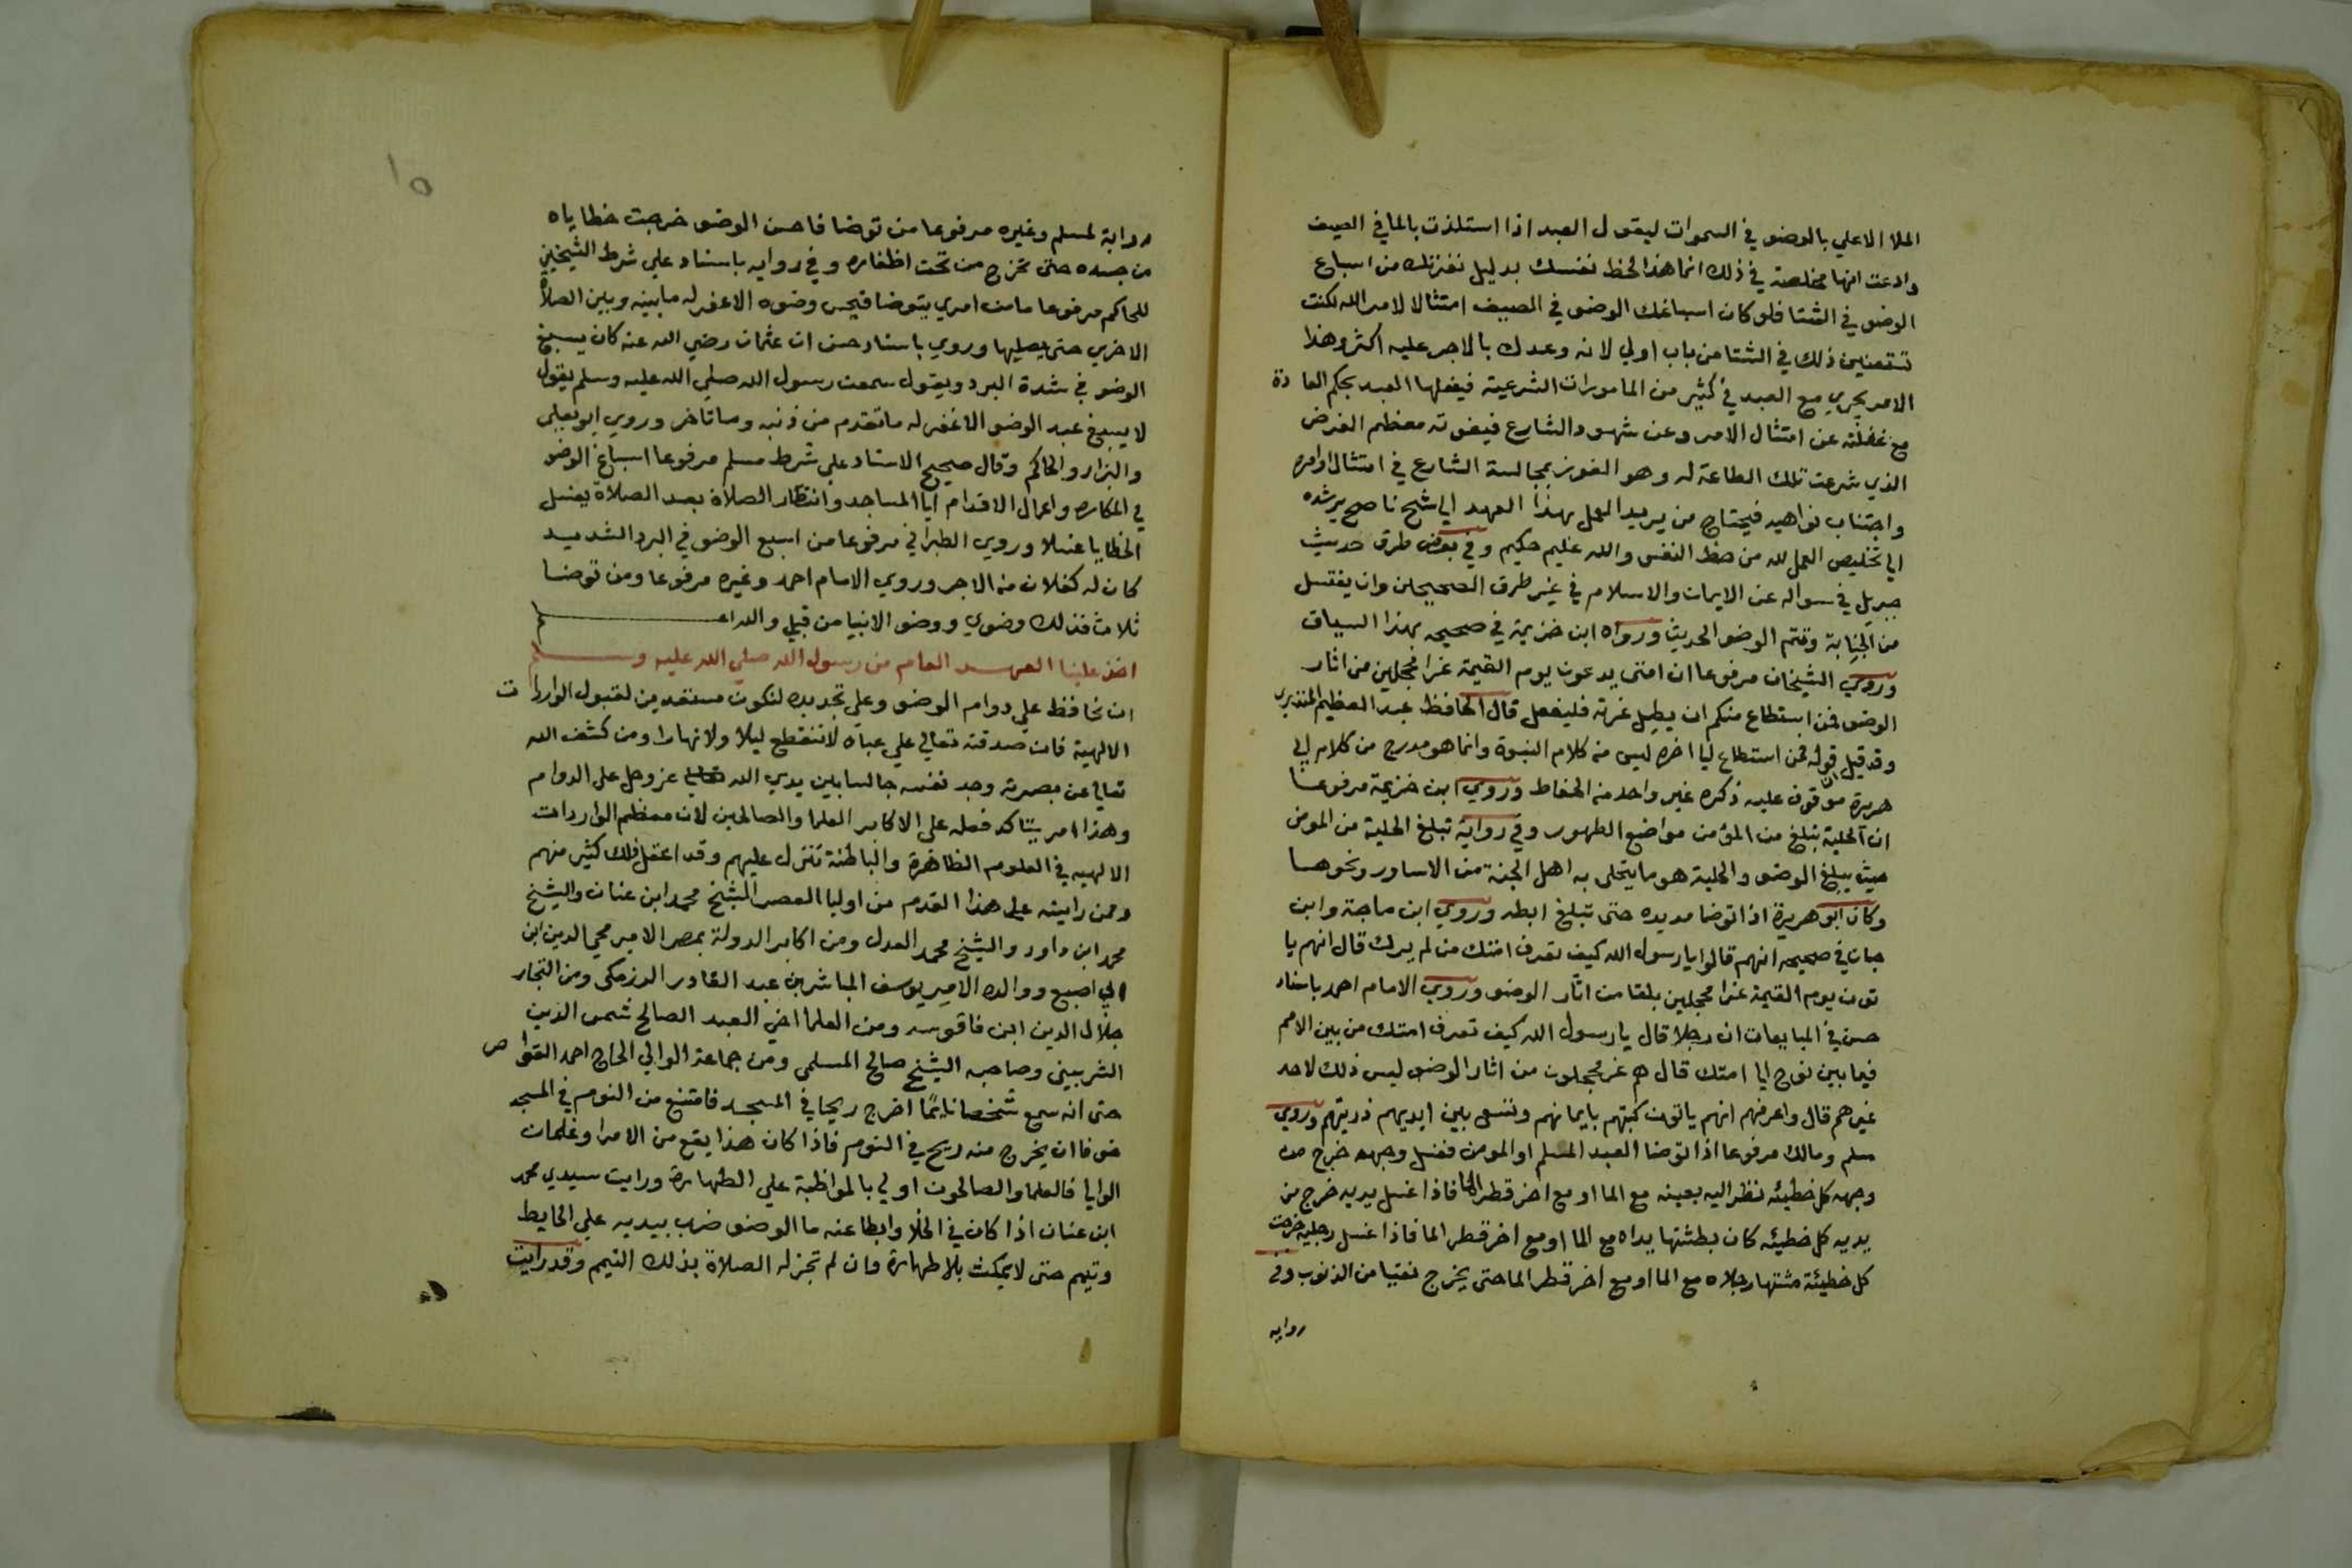 الملا الاعلي بالوضو في السموات ليقول العبد اذا استلذت بالما في الصيف
وادعت انها مخلصة في ذلك انما هذا لحظ نفسك بدليل نفرتك من اسباغ
الوضو في الشتا فلو كان اسباغك الوضو في الصيف امتثالا لامر الله لكنت
تستعنين ذلك في الشتا من باب اولي لانه وعدك بالاجر عليه اكثر وهذا
الامر يجري مع العبد في كثير من المامورات الشرعية فيفعلها العبد بحكم العادة
مع غفلته عن امتثال الامر وعن شهود الشارع فيفوته معظم الغرض
الذي شرعت تلك الطاعة له وهو الفوز بمجالسة الشارع في امتثال اوامره
واجتناب نواهيه فيحتاج من يريد العمل بهذا العهد الي شيخ ناصح يرشده
الي تخليص العمل لله من حظ النفس والله عليم حكيم وفي بعض طرق حديث
جبريل في سواله عن الايمان والاسلام في غير طرق الصحيحين وان يغتسل
من الجنابة وتتم الوضو الحديث ورواه ابن خزيمة في صحيحه بهذا السياق
وروي الشيخان مرفوعا ان امتى يدعون يوم القيمة غرا محجلين من اثار
الوضو فمن استطاع منكم ان يطيل غرته فليفعل قال الحافظ عبد العظيم المنذري
وقد قيل ان قوله فمن استطاع ليا اخره ليس من كلام النبوة وانما هو مدرج من كلام ابي
هريرة موقوف عليه ذكره غير واحد من الحفاظ وروي ابن خزيمة مرفوعا
ان الحلية تبلغ من المؤمن مواضع الطهور وفي رواية تبلغ الحلية من المومن
حيث يبلغ الوضو والحلية هو ما يتحلى به اهل الجنة من الاساور ونحوها
وكان ابو هريرة اذا توضا مد يده حتى تبلغ ابطه وروي ابن ماجة وابن
حبان في صحيحه انهم قالوا يا رسول الله كيف تعرف امتك من لم يرك قال انهم يا
تون يوم القيمة غرا محجلين بلقا من اثار الوضو وروي الامام احمد باسناد
حسن في المبايعات ان رجلا قال يا رسول الله كيف تعرف امتك من بين الامم
فيما بين نوح ايا امتك قال هم غر محجلون من اثار الوضو ليس ذلك لاحد
غيرهم قال واعرفهم انهم ياتون كتبهم بايمانهم وتسعى بين ايديهم ذريتهم وروي
مسلم ومالك مرفوعا اذا توضا العبد المسلم او المومن فغسل وجهه خرج من
وجهه كل خطيئه نظر اليه بعينه مع الما او مع اخر قطر الما فاذا غسل يديه خرج من
يديه كل خطيئه كان بطشتها يداه مع الما او مع اخر قطر الما فاذا غسل رجليه خرجت
كل خطيئة مشتها رجلاه مع الما او مع اخر قطر الما حتى يخرج نقيا من الذنوب وفي
روايه
١٥
رواية لمسلم وغيره مرفوعا من توضا فاحسن الوضو خرجت خطاياه
من جسده حتى تخرج من تحت اظفاره وفي روايه باسناد علي شرط الشيخين
للحاكم مرفوعا ما من امري يتوضا فيحسن وضوه الا غفر له ما بينه وبين الصلاة
الاخري حتى يصليها وروي باسناد حسن ان عثمان رضي الله عنه كان يسبغ
الوضو في شدة البرد ويقول سمعت رسول الله صلي الله عليه وسلم يقول
لا يسبغ عبد الوضو الا غفر له ما تقدم من ذنبه وما تاخر وروي ابو يعلى
والبزار والحاكم وقال صحيح الاسناد علي شرط مسلم مرفوعا اسباغ الوضو
في المكاره واعمال الاقدام ايا المساجد وانتظار الصلاة بعد الصلاة يغسل
الخطايا غسلا وروي الطبراني مرفوعا من اسبغ الوضو في البرد الشديد
كان له كفلان من الاجر وروي الامام احمد وغيره مرفوعا ومن توضا
ثلاثا فذلك وضوي ووضو الانبيا من قبلي والله اعلم
اخذ علينا العهد العام من رسول الله صلي الله عليه وسلم
ان نحافظ علي دوام الوضو وعلي تجديده لنكون مستعدين لقبول الواردات
الالهية فان صدقته تعالي علي عباده لا تنقطع ليلا ولا نهارا ومن كشف الله
تعالي عن بصيرته وجد نفسه جالسا بين يدي الله عز وجل علي الدوام
وهذا امر يتاكد فعله على الاكابر العلما والصالحين لان معظم الواردات
الالهيه في العلوم الظاهرة والباطنة تنزل عليهم وقد اغفل ذلك كثير منهم
وممن رايته على هذا القدم من اوليا العصر الشيخ محمد ابن عنان والشيخ
محمد ابن داود والشيخ محمد العدل ومن اكابر الدولة بمصر الامير محي الدين ابن
ابي اصبع ووالده الامير يوسف المباشرين عبد القادر الرزمكى ومن التجار
جلال الدين ابن فاقوسه ومن العلما اخي العبد الصالح شمس الدين
الشربيني وصاحبه الشيخ صالح المسلمي ومن جماعة الوالي الحاج احمد القواص
حتى انه سمع شخصا نايما اخرج ريحا في المسجد فامتنع من النوم في المسجد
خوفا ان يخرج منه ريح في النوم فاذا كان هذا يقع من الامرا وغلمان
الوايا فالعلما والصالحون اولي بالمواظبة علي الطهارة ورايت سيدي محمد
ابن عنان اذا كان في الخلا وابطا عنه ما الوضو ضرب بيديه علي الحايط
وتيمم حتى لا يمكث بلا طهارة وان لم تجز له الصلاة بذلك التيمم وقد رايت